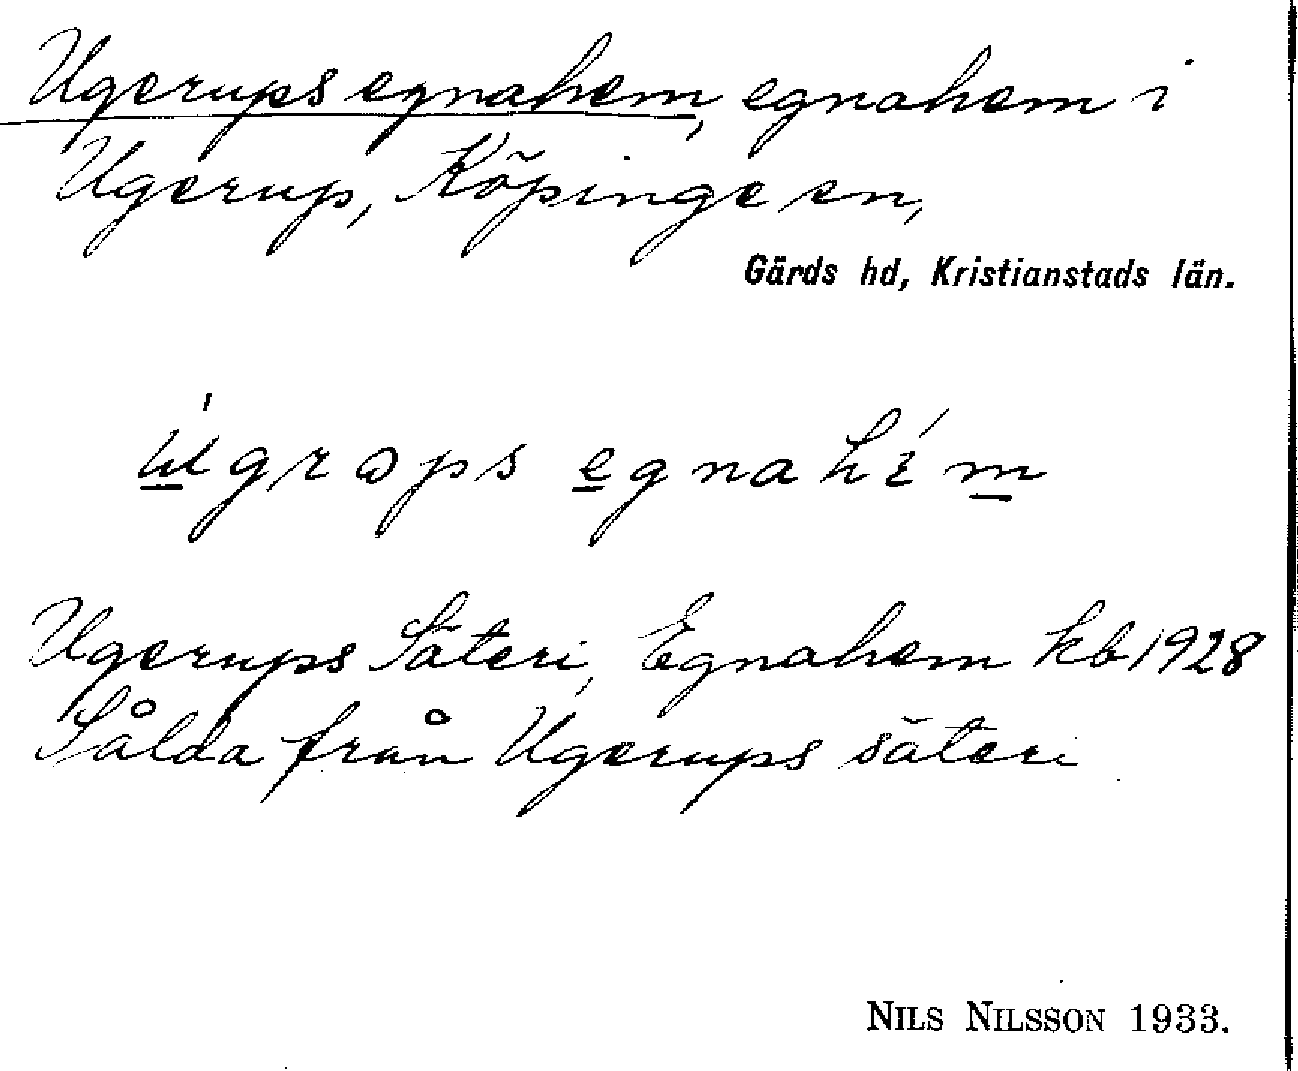 Ugerups egnahem, egnahem i
Ugerup, Köpinge sn,
Gärds hd, Kristianstads län.
Ugerups Säteri, Egnahem kb 1928
Sålda från Ugerups säteri
NILS NILSSON 1933.